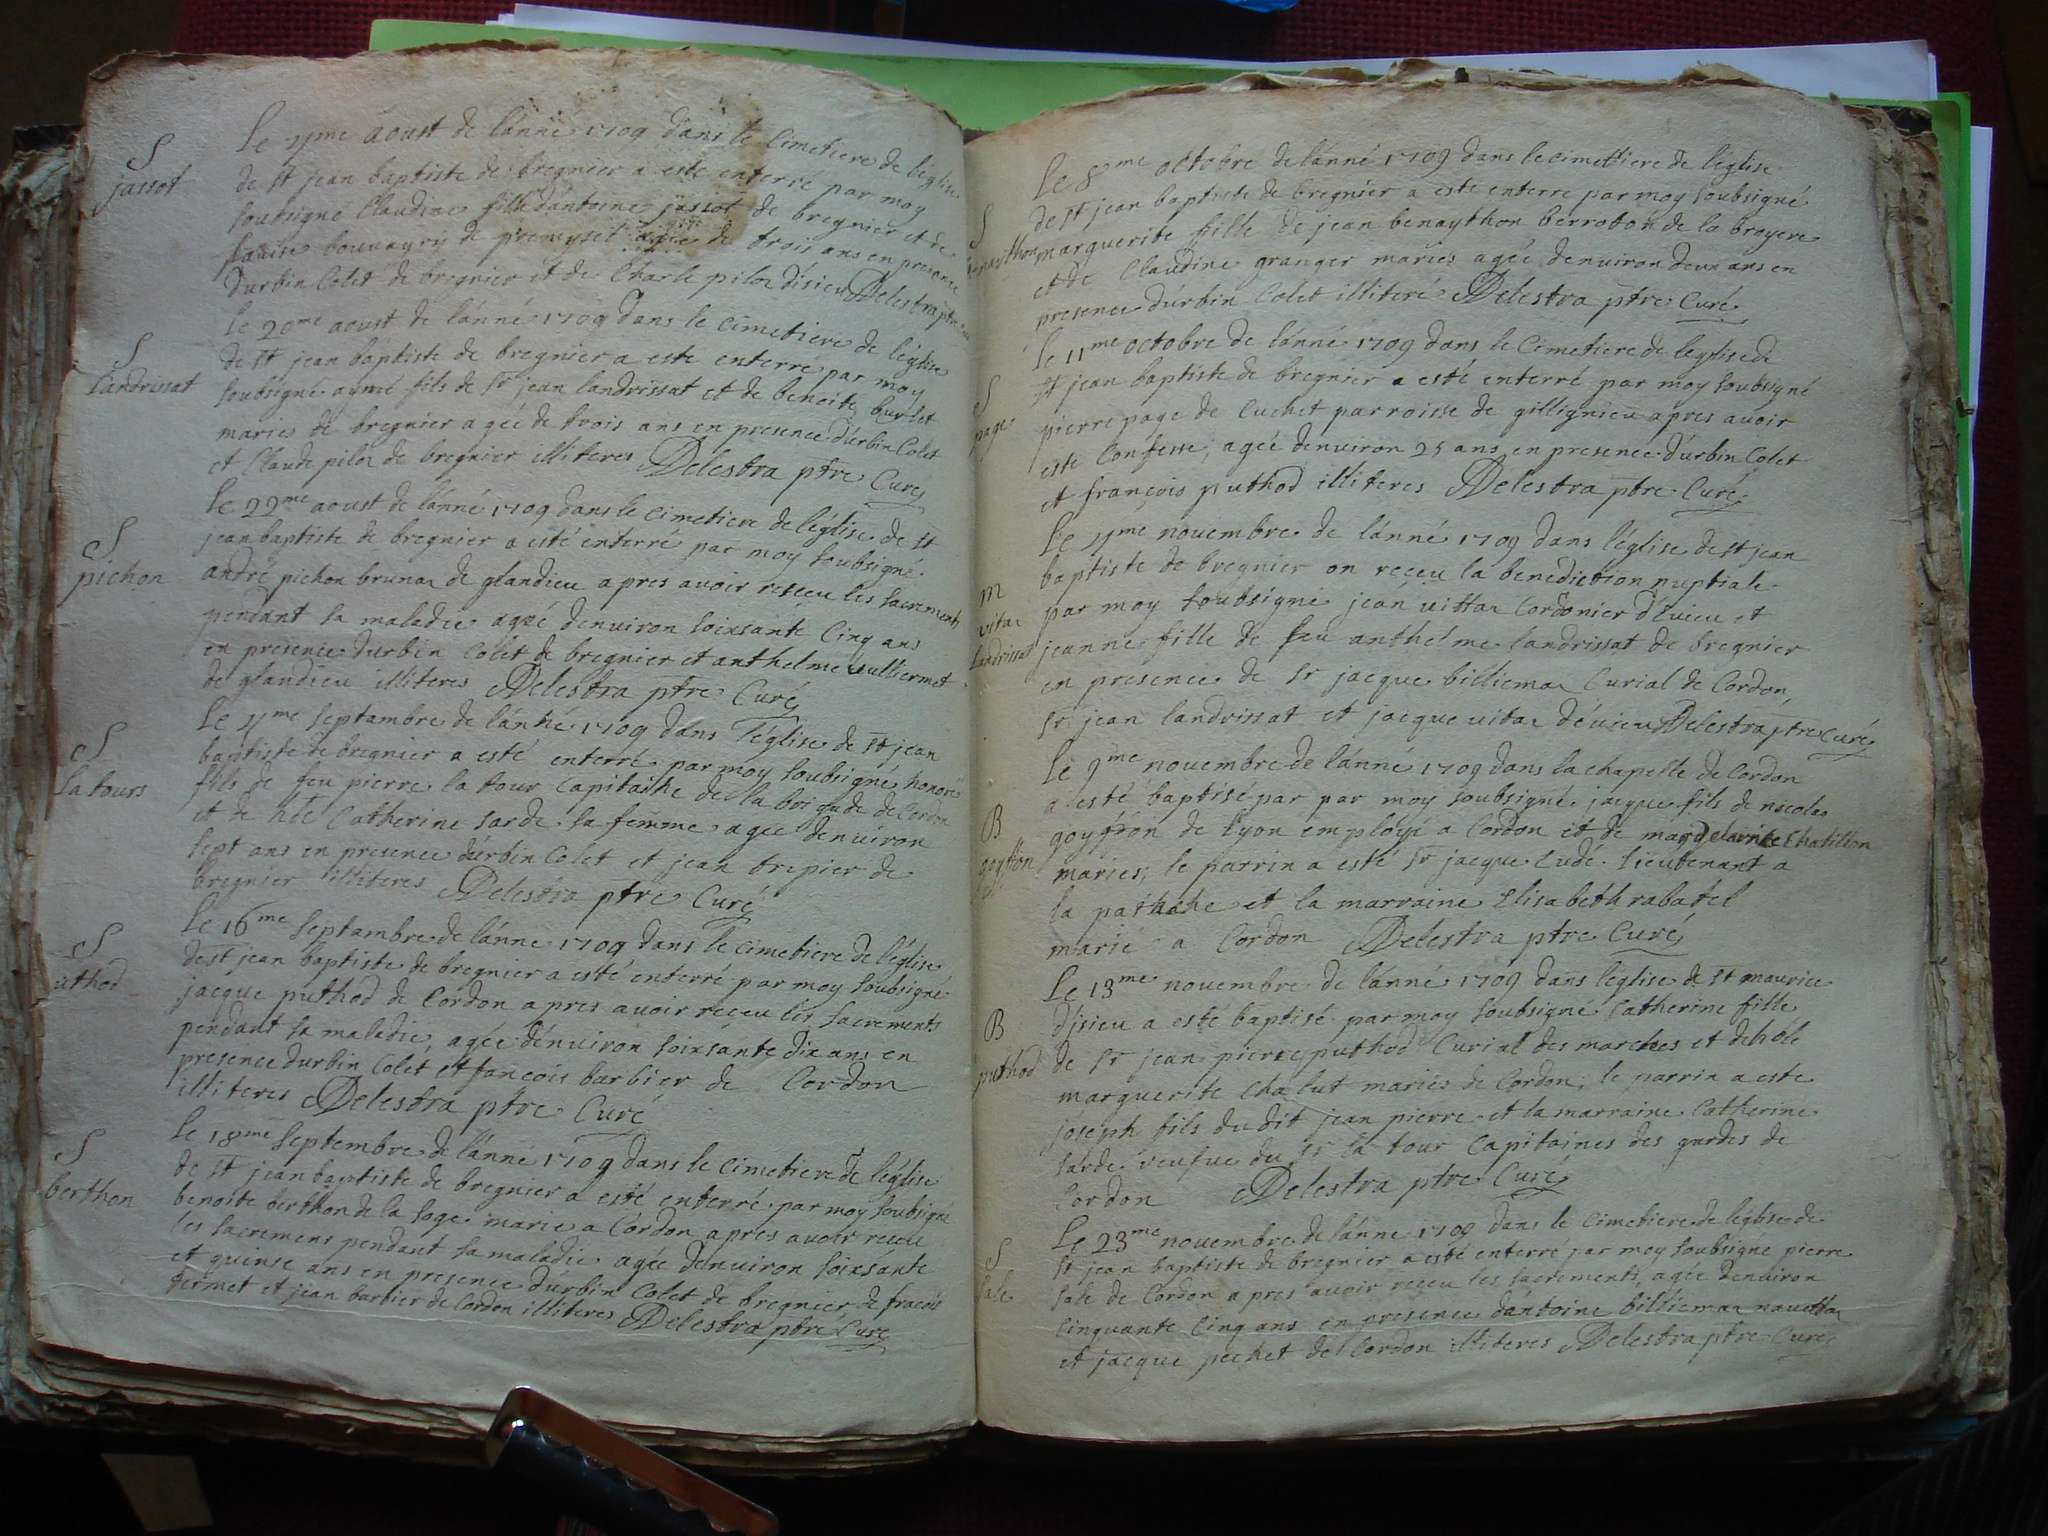 S
jassot
Le 4me aoust de lánné 1709 dans le Cimetiere de léglise
de st jean baptiste de bregnier a esté enterré par moy
soubsigné Claudine fille dántoine jassot de bregnier et de
bouvayry de premeysel agée de trois ans en presence
durbin Colet de bregnier et de Charle pilon disieu Delestra ptre
S
landrissat
le 20me aoust de lánné 1709 dans le cimetiere de léglise
de st jean baptiste de bregnier a este enterre par moy
soubsigné aymé fils de sr jean landrissat et de benoite burlet
maries de bregnier agée de trois ans en presence dúrbin Colet
et Claude pilon de bregnier illiteres Delestra ptre Curé
S
pichon
Le 22me aoust de lánné 1709 dans le cimetiere de léglise de st
jean baptiste de bregnier a esté enterré par moy soubsigné
andré pichon brunan de glandieu apres avoir receu les sacrements
pendant sa maladie agée denuiron soixsante Cinq ans
en presence durbin Colet de bregnier et anthelme vulliermet
de glandieu illiteres Delestra ptre Curé
S
la tours
Le 4me septambre de lánné 1709 dans léglise de st jean
baptiste de bregnier a esté enterré par moy soubsigné honoré
fils de feu pierre la tour Capitaine de la brigade de Cordon
et de hle Catherine sarde sa femme agée denuiron
sept ans en presence durbin Colet et jean trepier de
bregnier illiteres Delestra ptre Curé
S
uthod
Le 16me septambre de lánné 1709 dans le cimetiere de léglise
de st jean baptiste de bregnier a esté enterré par moy soubsigné
jacque puthod de Cordon apres avoir reçeu les sacrements
pendant sa maladie, agée dénuiron soixsante dix ans en
presence durbin Colét et fançois barbier de Cordon
illiteres Delestra ptre Curé
S
berthon
Le 18me septembre de lánné 1709 dans le cimetiere de léglise
de st jean baptiste de bregnier a esté enterré par moy soubsigné
benoite berthon de la soge marie a Cordon apres avoir reçeu
les sacremens pendant sa maladie agée denuiron soixsante
et quinse ans en presence dúrbin Colet de bregnier de fracois
termet et jean barbier de Cordon illiteres Delestra ptre Curé
S
benaithon
Le 8me octobre de lánné 1709 dans le cimettiere de léglise
de st jean baptiste de bregnier a este enterre par moy soubsigné
marguerite fille de jean benaython berroton de la broyere
et de Claudine granger maries agée denuiron deux ans en
presence dúrbin Colet illiteré Delestra ptre Curé
S
page
le 11me octobre de lánné 1709 dans le Cimetiere de leglise de
st jean baptiste de bregnier a esté enterré par moy soubsigné
pierre page de Cuchet parroisse de gillignieu apres avoir
este Confesse, agée denuiron 25 ans en presence dúrbin Colet
et françois puthod illiteres Delestra ptre Curé
m
vitan
Landrissat
Le 4me novembre de lánné 1709 dans léglise de st jean
baptiste de bregnier on reçeu la benediction nuptiale
par moy soubsigné jean vittan Cordonier déuieu et
jeanne fille de feu anthelme landrissat de bregnier
en presence de sr jacque billieman Curial de Cordon,
sr jean landrissat et jacque vitan déuieu Delestra ptre Curé
B
goyffon
Le 9me novembre de lánné 1709 dans la chapelle de Cordon
a esté baptisé par par moy soubsigné jacque fils de nicolas
goyffon de Lyon employé a Cordon et de Chatillon
maries, le parrin a esté sr jacque Ludé lieutenant a
la patache et la marraine Elisabeth rabatel
marié a Cordon Delestra ptre Curé
B
puthod
Le 13me novembre de lánné 1709 dans léglise de st maurice
djsieu a esté baptisé par moy soubsigné Catherine fille
de sr jean pierre puthod Curial des marches et de hole
marguerite chalut mariés de Cordon, le parrin a este
joseph fils du dit jean pierre et la marraine Catherine
sarde veufue du sr la tour Capitaines des gardes de
Cordon Delestra ptre Curé
S
sale
Le 23me novembre de lánné 1709 dans le cimetiere de léglise de
st jean baptiste de bregnier a esté enterre par moy soubsigné pierre
sale de Cordon apres avoir reçeu les sacrements, agée denuiron
cinquante Cinq ans en presence dántoine billieman navettan
et jacque pechet de Cordon illiteres Delestra ptre Curé